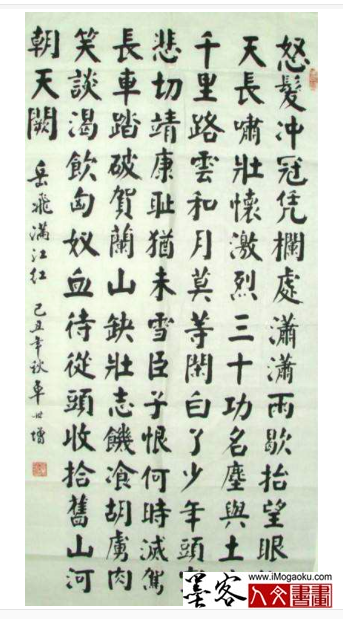 怒髮沖冠凭欄處瀟瀟雨歇抬望眼
天長嘯壯懷激烈三十功名塵與土
千里路雲和月莫等閑白了少年頭
悲切靖康耻猶未雪臣子恨何時滅駕
長車踏破賀蘭山缺壯志饑飡胡虜肉
笑談渴飲匈奴血待從頭收拾舊山河
朝天闕
岳飛滿江红
己丑年秋 卓世
墨客
www.iMogaoku.com
人文書畫